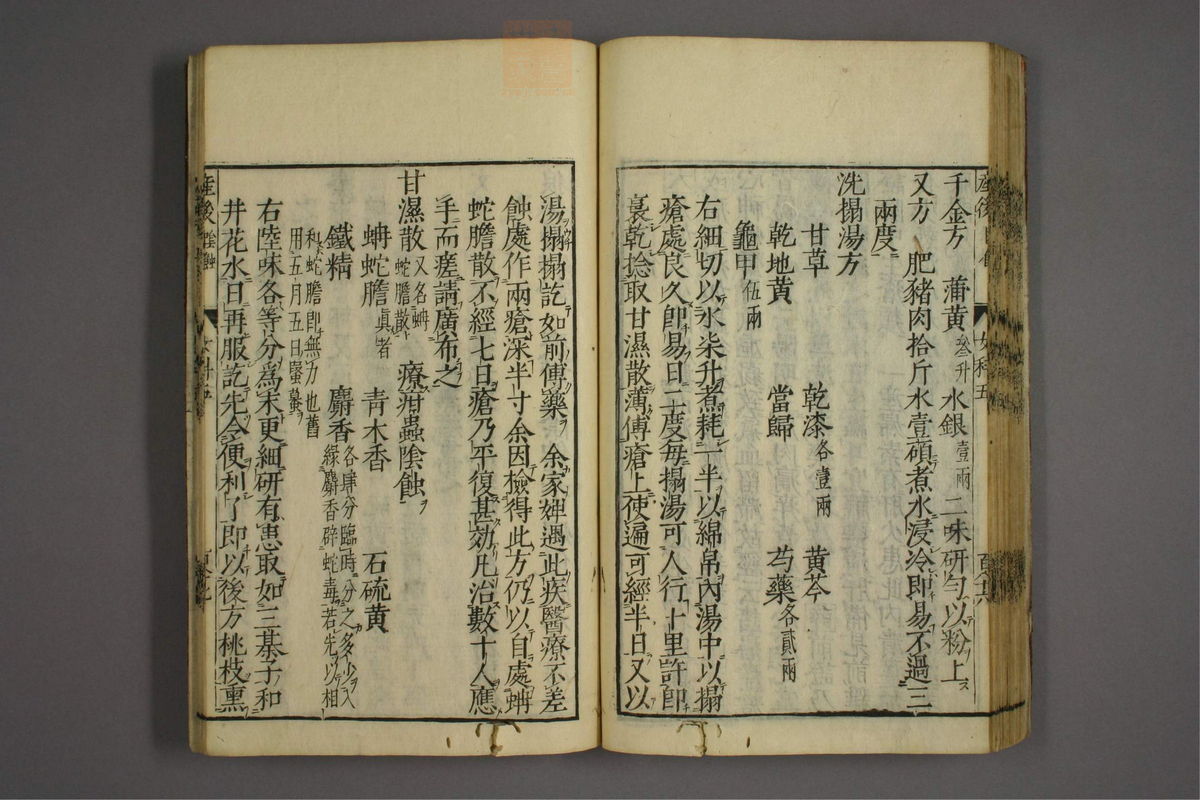 千金方 蒲黄叁升水銀壹兩二味研勻以粉上
又方 肥豬肉拾斤水壹碩煮水浸冷即易不過三
兩度
洗搨湯方
甘草 乾漆各壹兩 黄芩
乾地黄 當歸 芍藥各貳兩
龜甲伍兩
右細切以水柒升煮耗一半以綿帛內湯中以搨
瘡處良久即易日二度每搨湯可人行十里許即
裛乾捻取甘濕散薄傅瘡上使遍可經半日又以
湯搨搨訖如前傅藥 余家婢遇此疾醫療不差
蝕處作兩瘡深半寸余因檢得此方仍以自處蚺
蛇膽散不經七日瘡乃平復甚効凡治數十人應
手而瘥請廣布之
甘濕散又名蚺蛇膽散 療疳蟲陰蝕
蚺蛇膽真者 青木香 石硫黄
鐵精 麝香各肆分臨時分之多少入緣麝香辟蛇毒若先以相
和蛇膽即無力也舊用五月五日蝦蟇
右陸味各等分為末更細研有患取如三棊子和
井花水日再服訖先令便利了即以後方桃枝熏
産後陰蝕
女科五